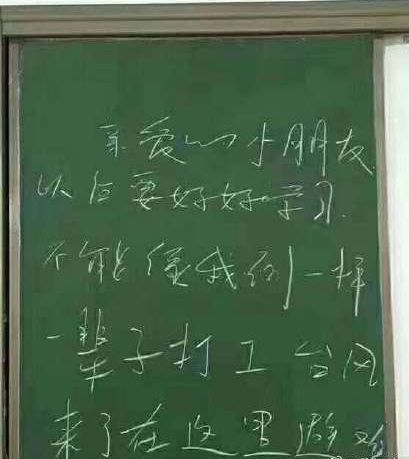 亲爱的小朋友
以后要好好学习.
不能像我们一样
一辈子打工台风
来了在这里避难